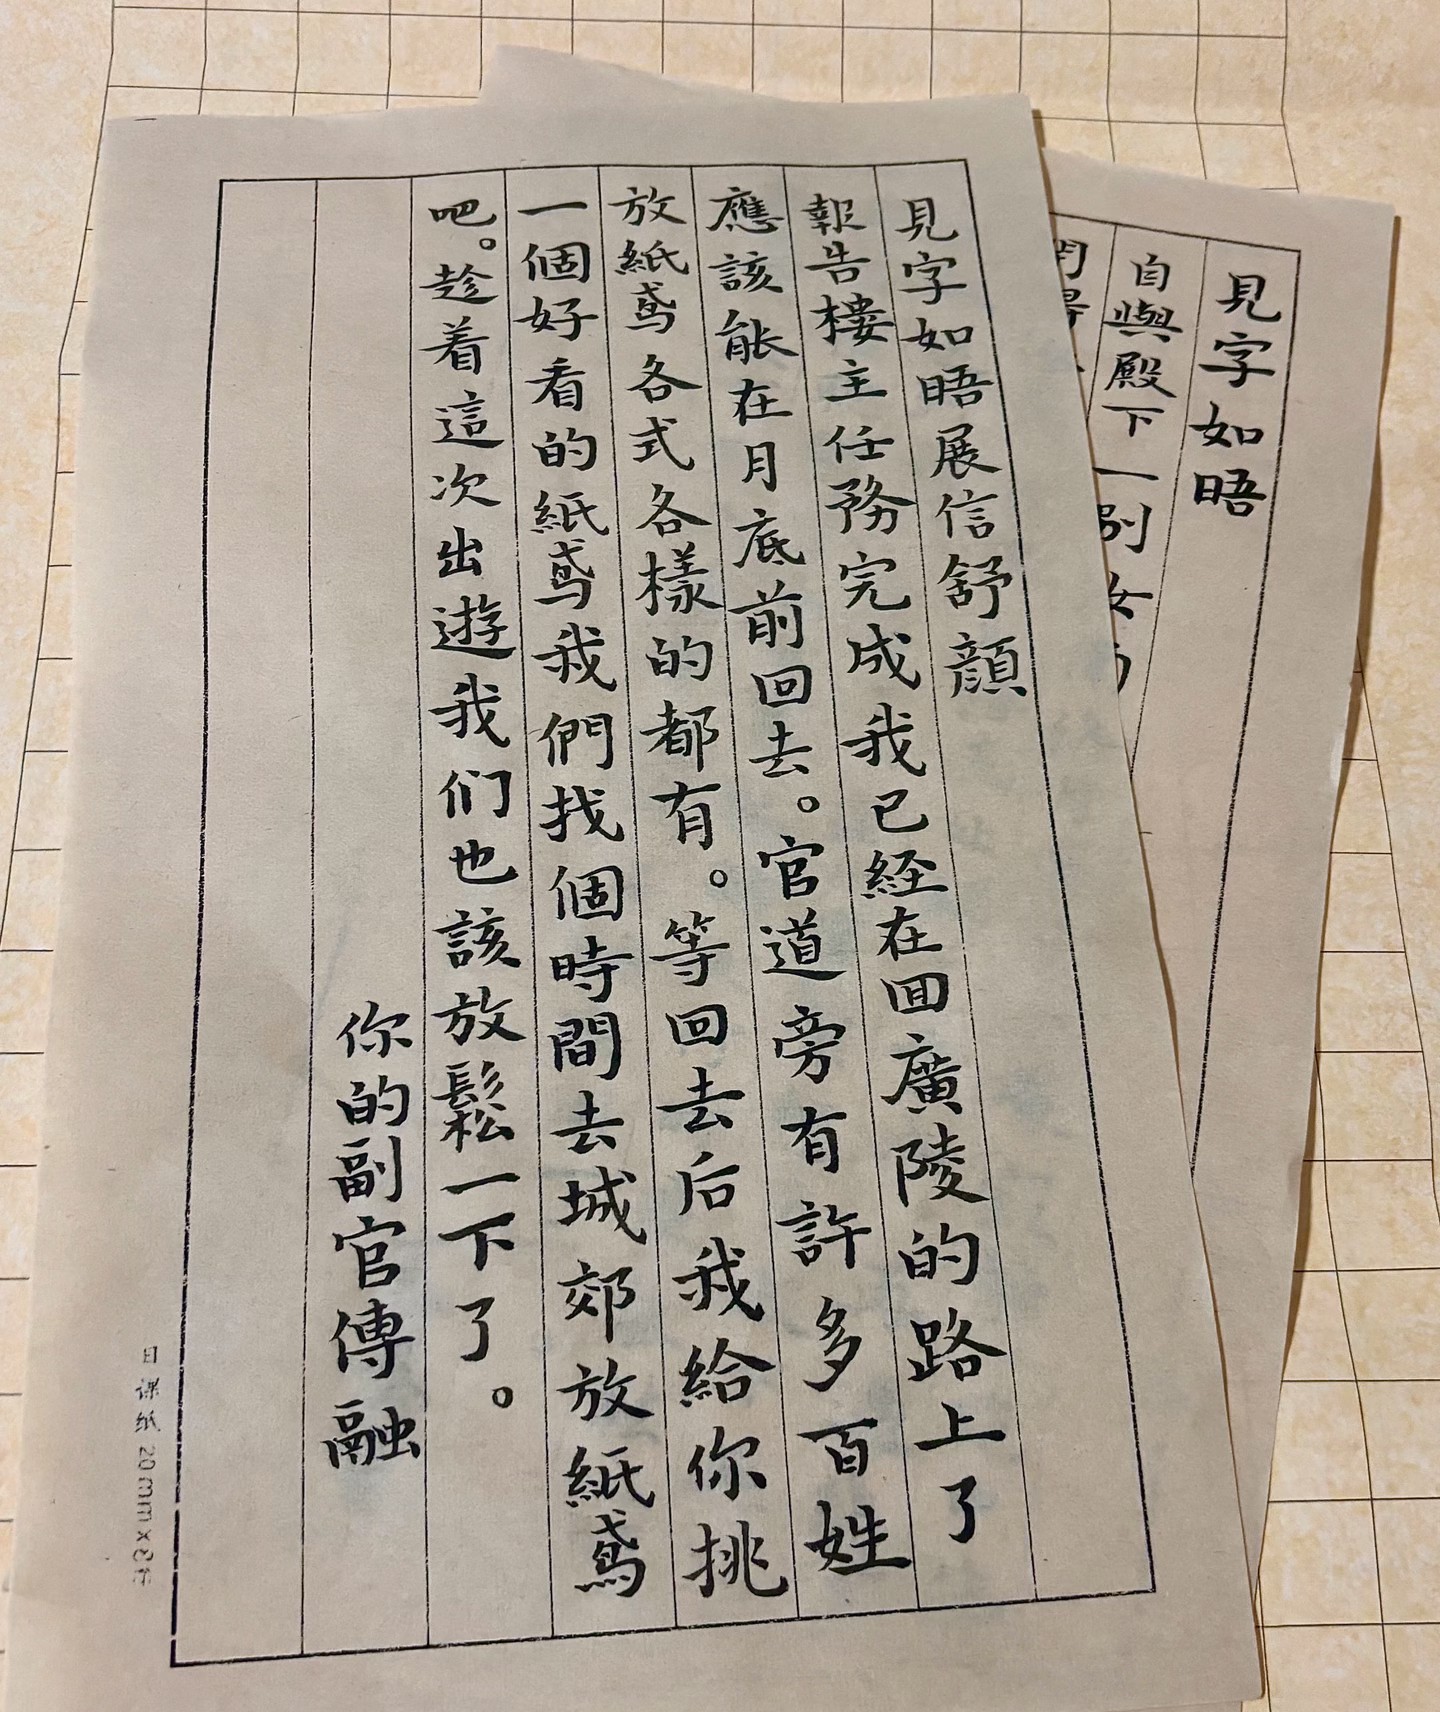 見字如晤展信舒顔
報告樓主任務完成我已經在回廣陵的路上了
應該能在月底前回去。官道旁有許多百姓
放紙鳶各式各樣的都有。等回去后我給你挑
一個好看的紙鳶我們找個時間去城郊放紙鳶
吧。趁着這次出遊我们也該放鬆一下了。
你的副官傅融
日课纸 20mm×8
見字如晤
自與殿下一别